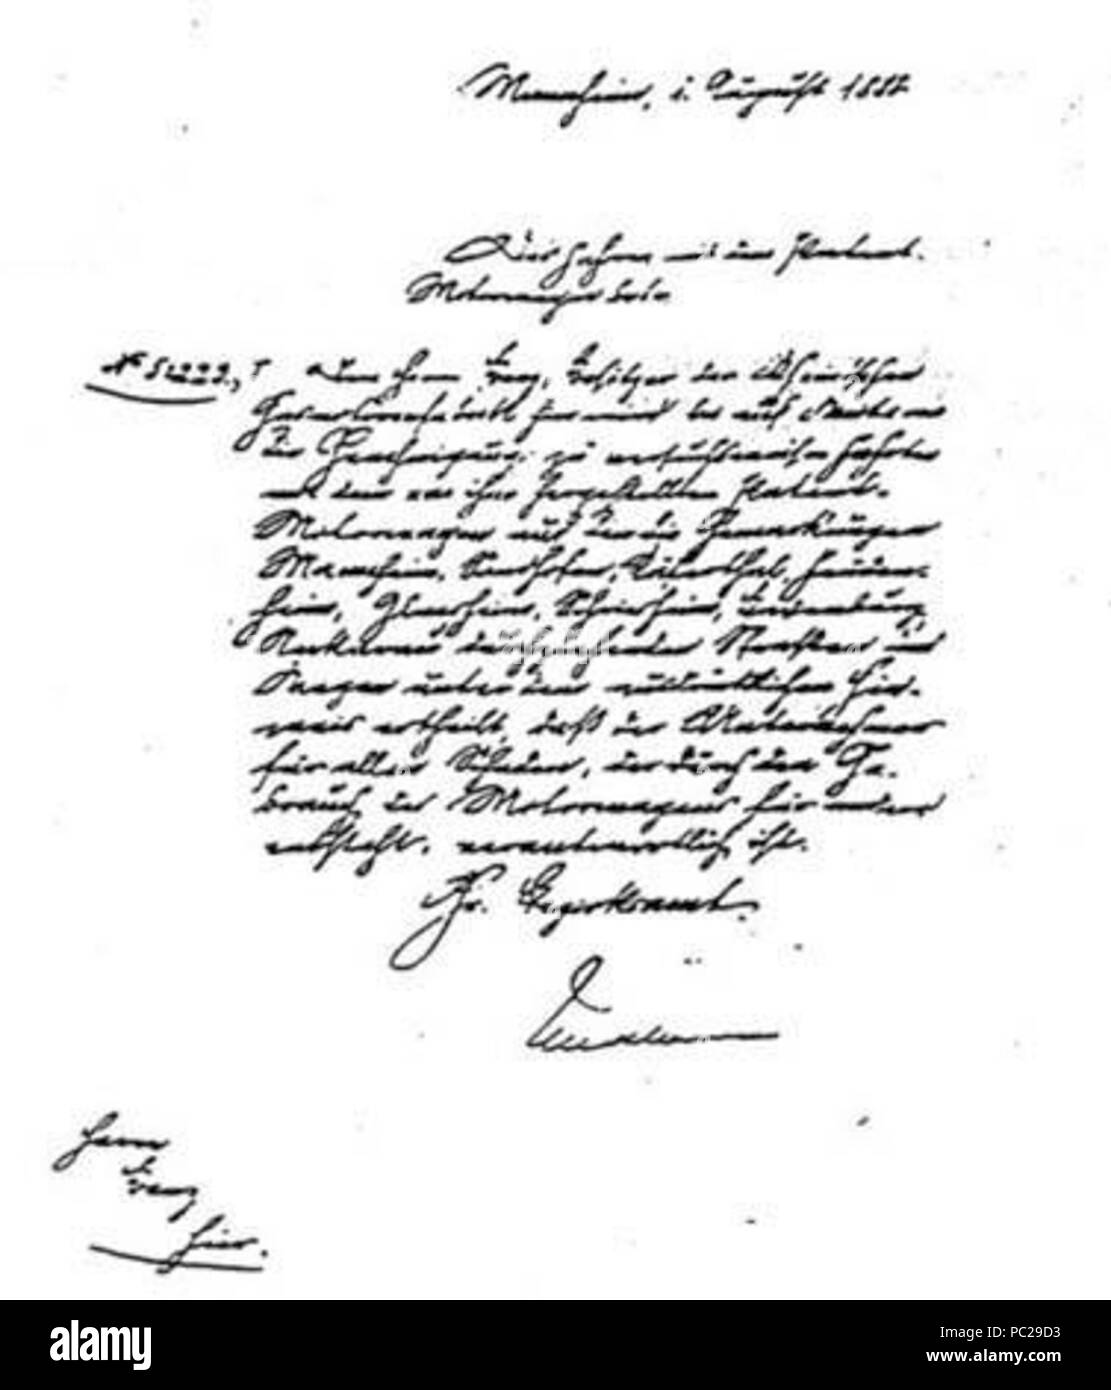 Mannheim, 1. August 1888
Das Fahren mit dem Patent-
Motorwagen betr.
Nº 51229, I Dem Herrn Benz, Besitzer der Rheinischen
Gasmotorenfabrik hier wird bis auf Weiteres
die Genehmigung zu versuchsweisen Fahrten
mit dem von ihm hergestellten Patent-
Motorwagen auf den die Gemarkungen
Mannheim, Sandhofen, Käferthal, Feuden-
heim, Ilvesheim, Schriesheim, Ladenburg,
Neckarau durchziehenden Straßen und
Wegen unter dem ausdrücklichen Hin-
weis ertheilt, daß der Unternehmer
für allen Schaden, der durch den Ge-
brauch des Motorwagens für andere
entsteht, verantwortlich ist.
Gr. Bezirksamt.
Herrn
Benz
hier.
alamy
alamy
Image ID: PC29D3
www.alamy.com